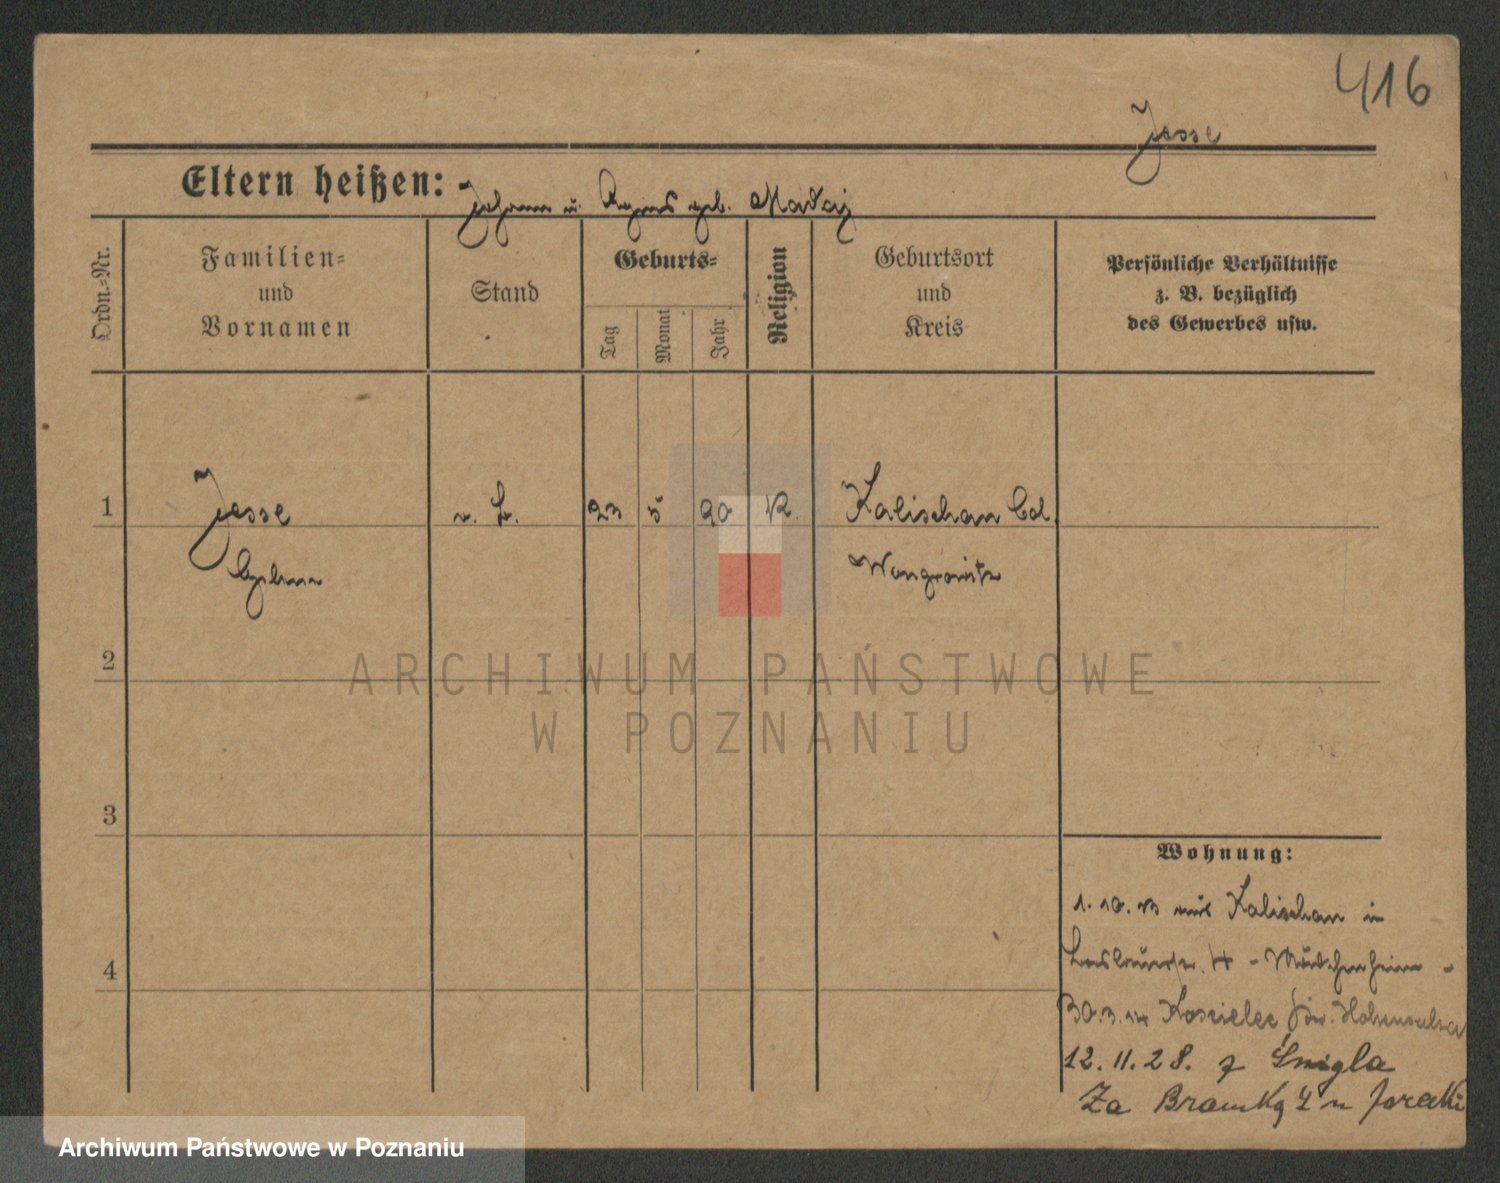 416
Jesse
Eltern heißen: Johann u. Agnes geb. Madaj
Ordn.-Nr.
Familien-
und
Vornamen
Stand
Geburts-
Tag
Monat
Jahr
Religion
Geburtsort
und
Kreis
Persönliche Verhältnisse
z. B. bezüglich
des Gewerbes usw.
1 Jesse 23 5 90 K. Kalischan Col.
Wongrowitz
2
ARCHIWUM PAŃSTWOWE
W POZNANIU
3
Wohnung:
1. 10. 13 aus Kalischan in
4 - Mädchenheim -
4
Koscielec Hohensalza
12. 11. 28. z Śmigla
Za Bramką
Archiwum Państwowe w Poznaniu